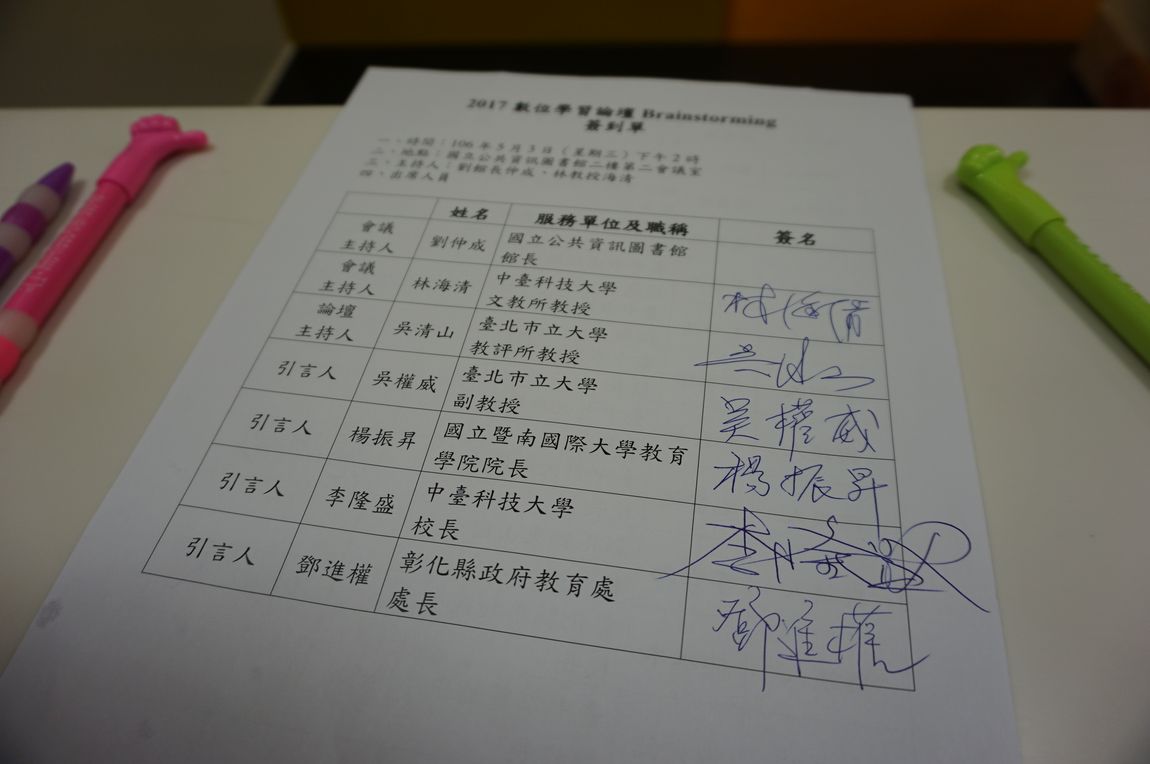 2017 數位學習論壇 Brainstorming
簽到單
一、時間：106 年 5 月 3 日（星期三）下午 2 時
二、地點：國立公共資訊圖書館二樓第二會議室
三、主持人：劉館長仲成、林教授海清
四、出席人員
姓名 服務單位及職稱 簽名
會議
主持人 劉仲成 國立公共資訊圖書館
館長
會議
主持人 林海清 中臺科技大學
文教所教授 林海清
論壇
主持人 吳清山 臺北市立大學
教評所教授 吳清山
引言人 吳權威 臺北市立大學
副教授 吳權威
引言人 楊振昇 國立暨南國際大學教育
學院院長 楊振昇
引言人 李隆盛 中臺科技大學
校長 李隆盛
引言人 鄧進權 彰化縣政府教育處
處長 鄧進權